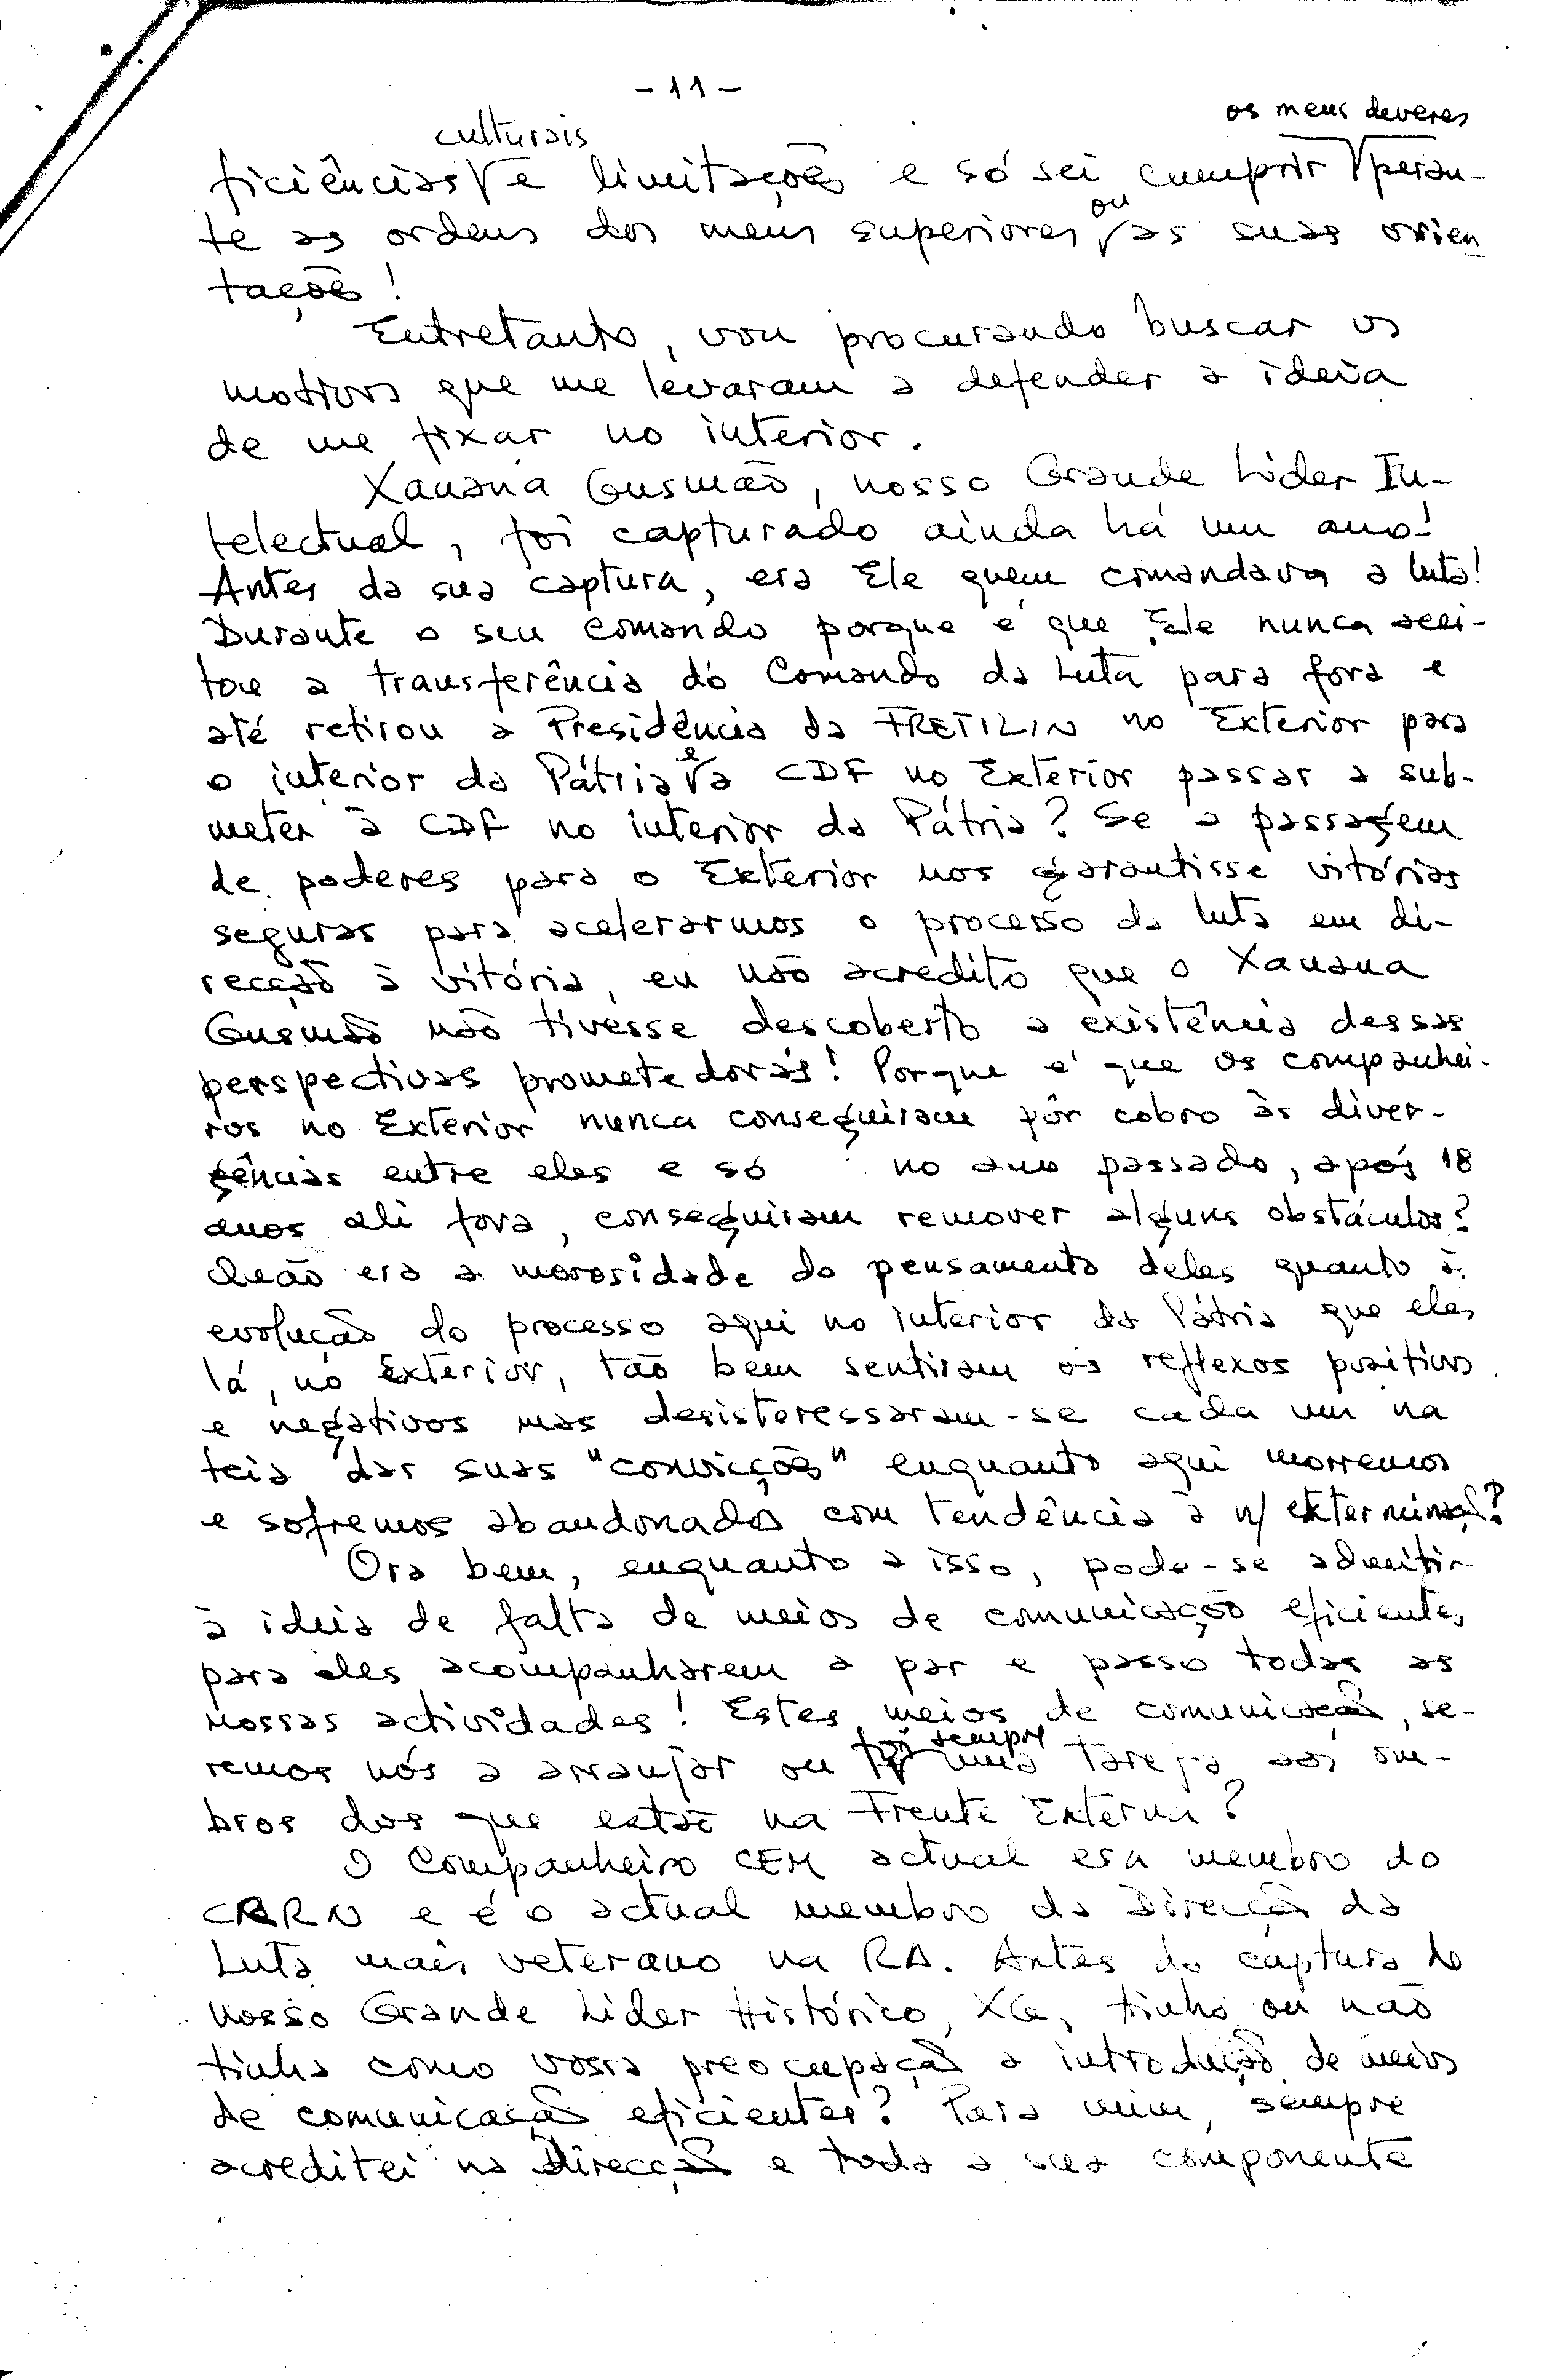 - 11 -
ficiências culturais e limitações e só sei cumprir os meus deveres peran-
te as ordens dos meus superiores ou as suas orien-
tações!
Entretanto, vou procurando buscar os
motivos que me levaram a defender a ideia
de me fixar no interior.
Xanana Gusmão, nosso Grande Líder In-
telectual, foi capturado ainda há um ano!
Antes da sua captura, era Ele quem comandava a luta!
Durante o seu comando porque é que Ele nunca acei-
tou a transferência do Comando da Luta para fora e
até retirou a Presidência da FRETILIN no Exterior para
o interior da Pátria e a CDF no Exterior passar a sub-
meter à CDF no interior da Pátria? Se a passagem
de poderes para o Exterior nos garantisse vitórias
seguras para acelerarmos o processo da luta em di-
recção à vitória, eu não acredito que o Xanana
Gusmão não tivesse descoberto a existência dessas
perspectivas prometedoras! Porque é que os companhei-
ros no Exterior nunca conseguiram pôr cobro às diver-
gências entre eles e só no ano passado, após 18
anos ali fora, conseguiram remover alguns obstáculos?
Ou era a morosidade do pensamento deles quanto à
evolução do processo aqui no interior da Pátria que eles,
lá, no Exterior, tão bem sentiram os reflexos positivos
e negativos mas desisteressaram-se cada um na
teia das suas "convicções" enquanto aqui morremos
e sofremos abandonados com tendência à n/ exterminaç?
Ora bem, enquanto a isso, pode-se admitir
à ideia de falta de meios de comunicação eficientes
para eles acompanharem a par e passo todas as
nossas actividades! Estes meios de comunicação, se-
remos nós a arranjar ou foi sempre uma tarefa aos om-
bros dos que estão na Frente Externa?
O Companheiro CEM actual era membro do
CRRN e é o actual membro da Direcção da
Luta mais veterano na RA. Antes da captura do
nosso Grande Líder Histórico, XG, tinha ou não
tinha como vossa preocupação a introdução de meios
de comunicação eficientes? Para mim, sempre
acreditei na Direcção e toda a sua componente